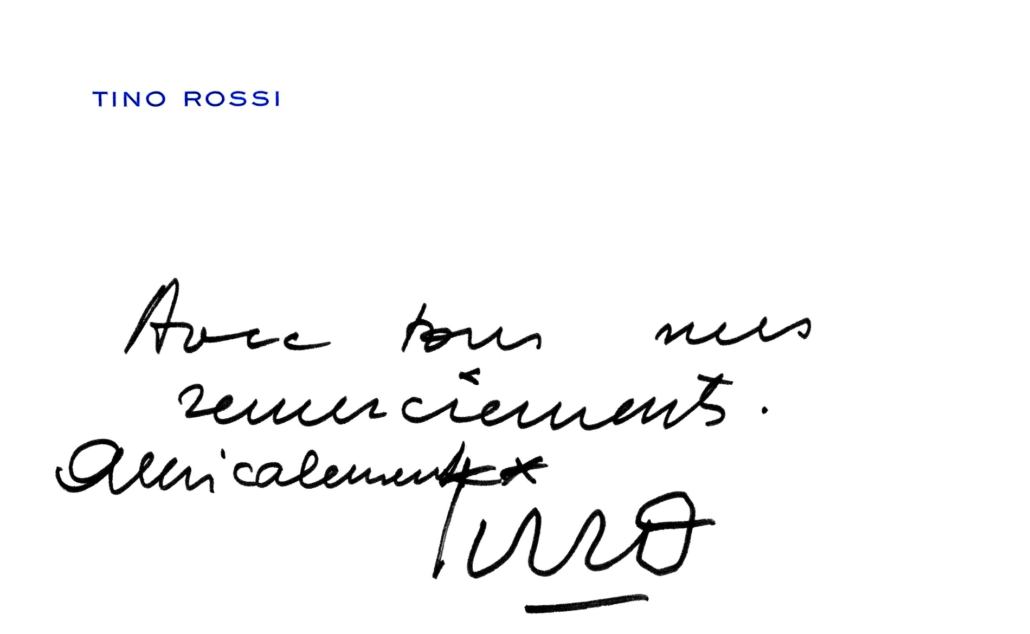 TINO ROSSI
Avec tous mes
remerciements.
Amicalement
Tino